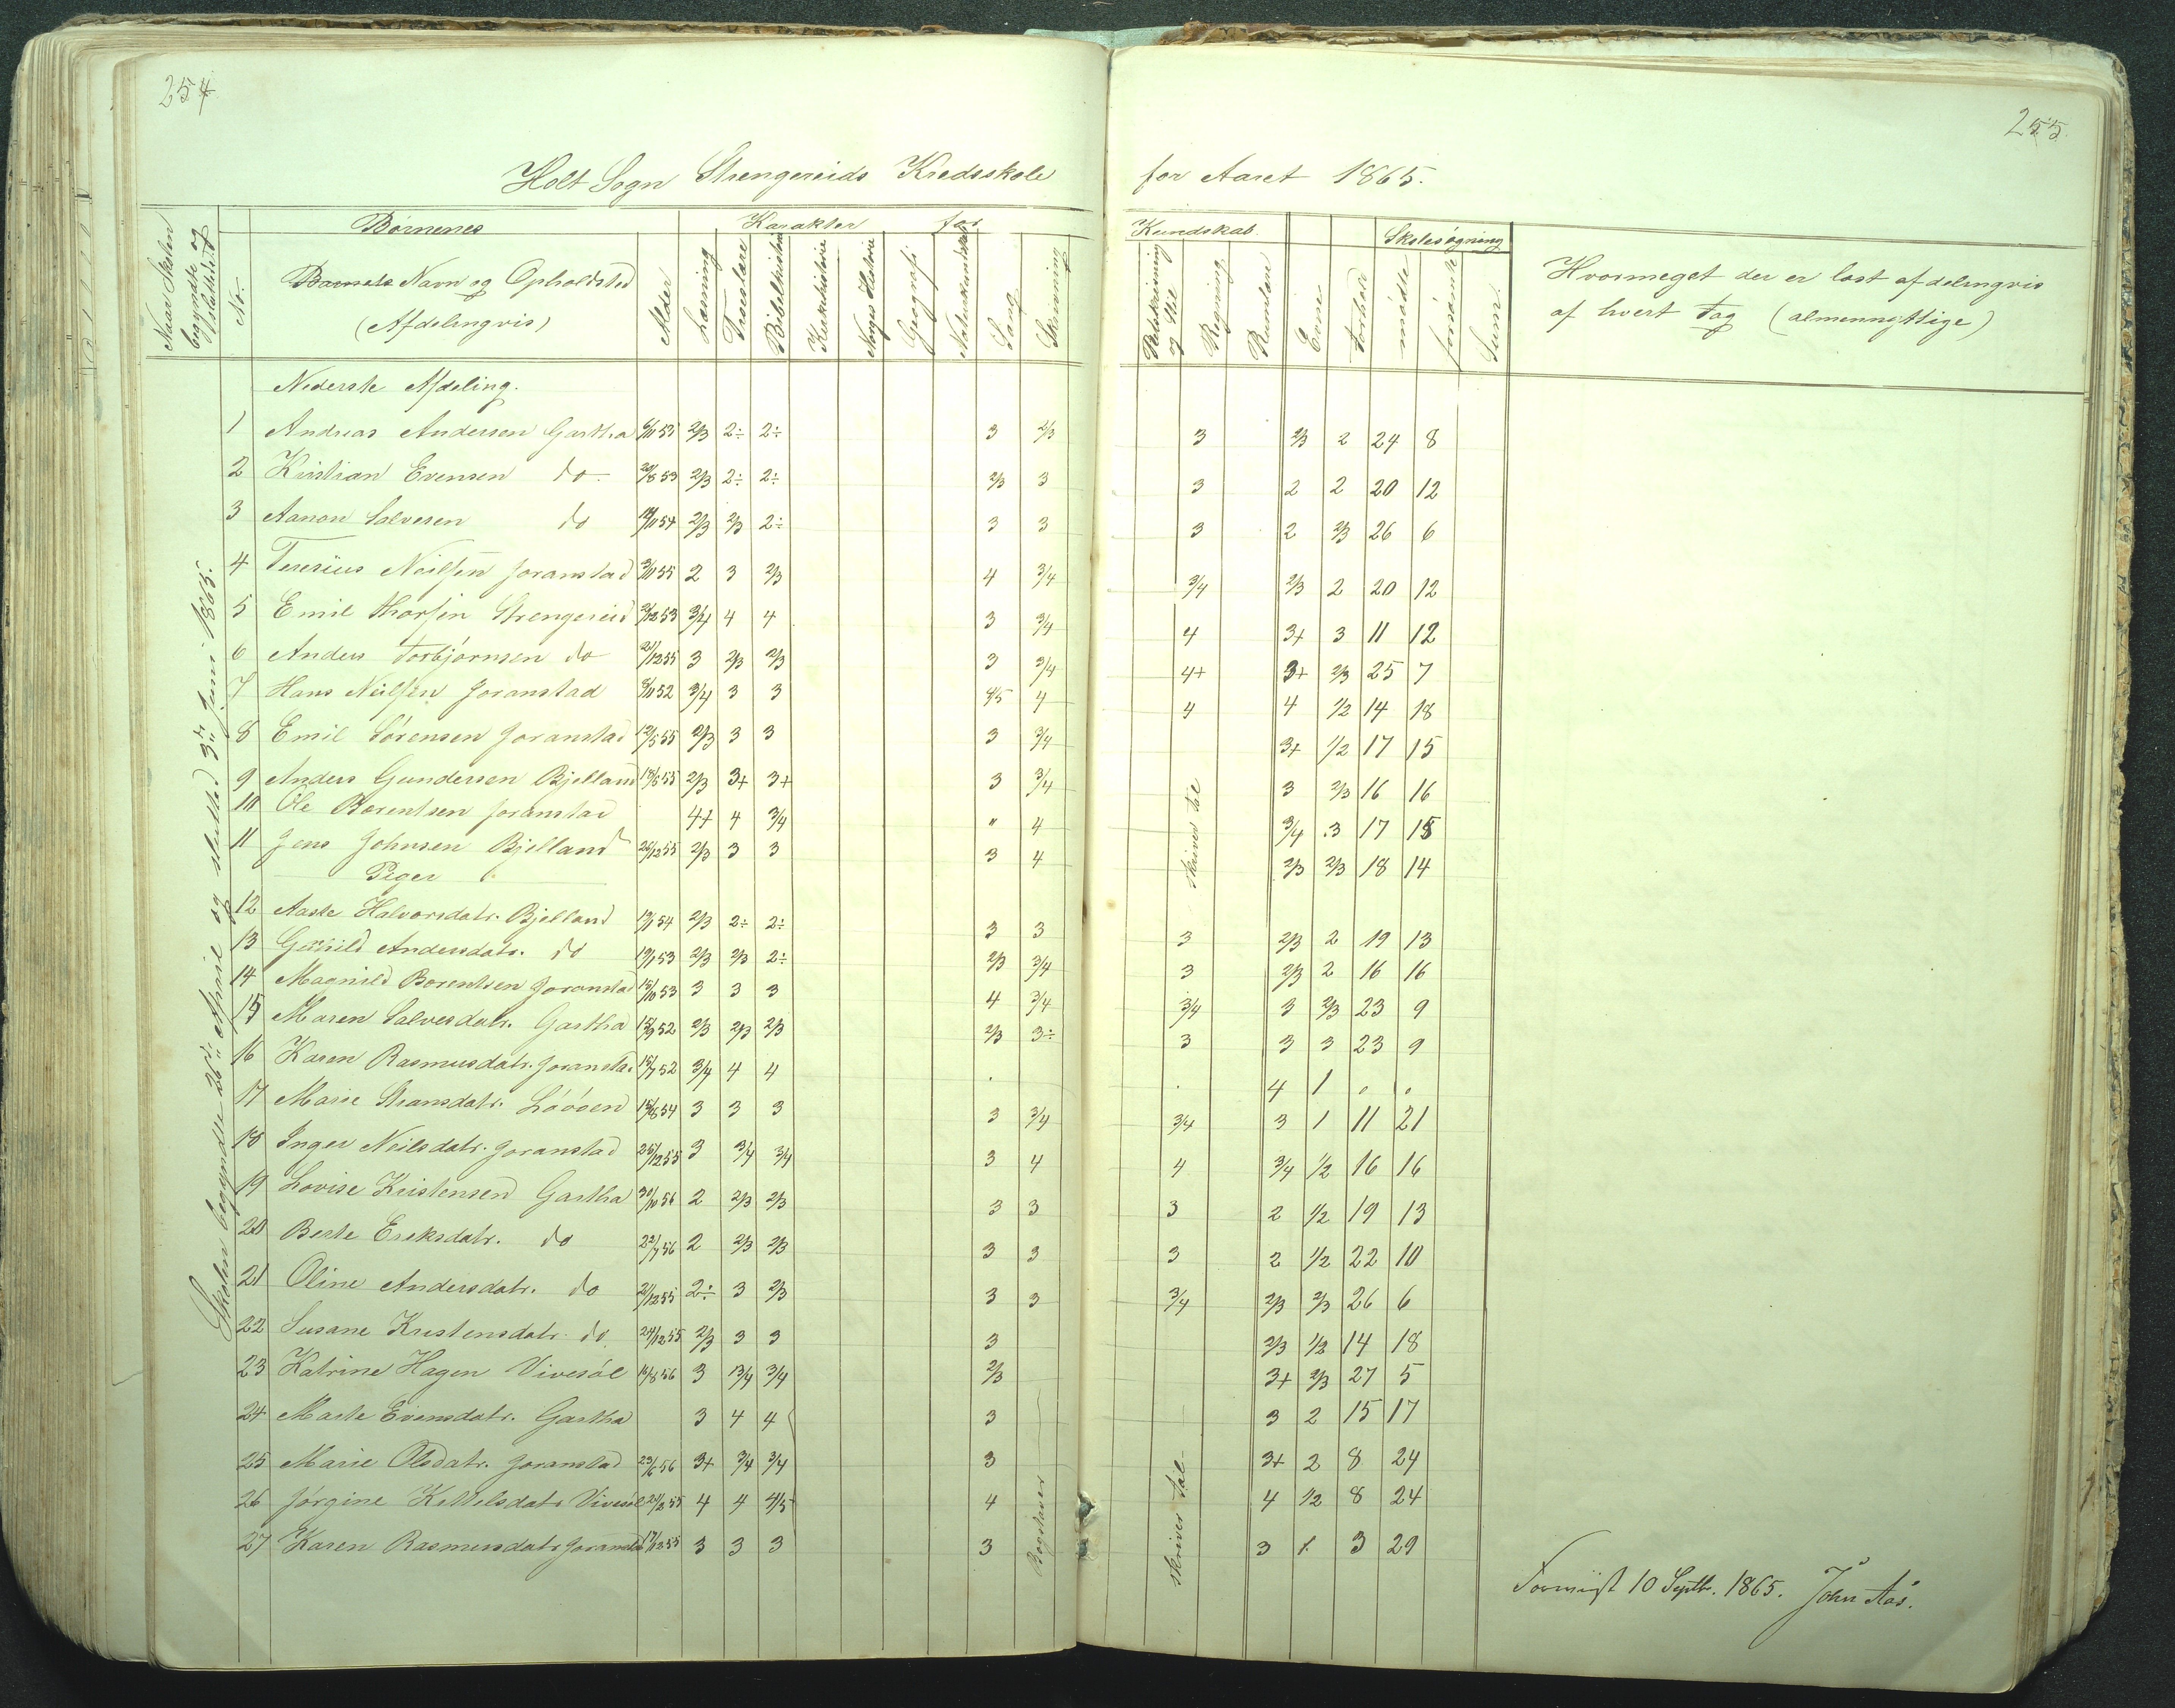 254
255.
Holt Sogn Strengereids Kredsskole for Aaret 1865.
Naar Skolen begyndte og sluttedes
No.
Børnenes
Barnets Navn og Opholdsted
(Afdelingvis)
Alder
Karakter for Kundskab.
Læsning
Troeslære
Bibelhistorie
Kirkehistorie
Norges Historie
Geografi
Naturkundskab
Sang
Skrivning
Retskrivning og Stil
Regning
Rumlære
Evner
Forhold
Skolesøgning
mødte
forsømte
Sum.
Hvormeget der er læst afdelingvis
af hvert Fag (almennyttige)
Skolen begyndte 26de April og slutted 3die Juni 1865.
Nederste Afdeling.
1 Andreas Andersen Gartha 6/11 53 2/3 2÷ 2÷ 3 2/3 3 2/3 2 24 8
2 Kristian Evensen do 20/8 53 2/3 2÷ 2÷ 2/3 3 3 2 2 20 12
3 Aanon Salvesen do 14/11 54 2/3 2/3 2÷ 3 3 3 2 2/3 26 6
4 Teresius Neilsen Joranstad 3/11 55 2 3 2/3 4 3/4 3/4 2/3 2 20 12
5 Emil Thorsen Strengereid 2/12 53 3/4 4 4 3 3/4 4 3+ 3 11 12
6 Anders Torbjørnsen do 21/12 55 3 2/3 2/3 3 3/4 4+ 3+ 2/3 25 7
7 Hans Neilsen Joranstad 8/11 52 3/4 3 3 4/5 4 4 4 1/2 14 18
8 Emil Sørensen Joranstad 12/5 55 2/3 3 3 3 3/4 3+ 1/2 17 15
9 Anders Gundersen Bjelland 18/6 55 2/3 3+ 3+ 3 3/4 3 2/3 16 16
10 Ole Borentsen Joranstad 4+ 4 3/4 " 4 3/4 3 17 15
11 Jens Johnsen Bjelland 26/12 55 2/3 3 3 3 4 2/3 2/3 18 14
skriver tal
Piger
12 Aaste Halvorsdatr. Bjelland 19/1 54 2/3 2÷ 2÷ 3 3 3 2/3 2 19 13
13 Andersdatr. do 19/1 53 2/3 2/3 2÷ 2/3 3/4 3 2/3 2 16 16
14 Magnild Borentsen Joranstad 15/10 53 3 3 3 4 3/4 3/4 3 2/3 23 9
15 Maren Salvesdatr. Gartha 15/9 52 2/3 2/3 2/3 2/3 3÷ 3 3 3 23 9
16 Karen Rasmusdatr. Joranstad 15/7 52 3/4 4 4 . . 4 1 . .
17 Marie Hansdatr. Løøsen 15/8 54 3 3 3 3 3/4 3/4 3 1 11 21
18 Inger Neilsdatr. Joranstad 25/12 55 3 3/4 3/4 3 4 4 3/4 1/2 16 16
19 Lovise Kristensen Gartha 30/10 56 2 2/3 2/3 3 3 3 2 1/2 19 13
20 Berte Ereksdatr. do 22/7 56 2 2/3 2/3 3 3 3 2 1/2 22 10
21 Oline Andersdatr. do 21/12 55 2÷ 3 2/3 3 3 3/4 2/3 2/3 26 6
22 Susane Kristensdatr. do 24/12 55 2/3 3 3 3 2/3 1/2 14 18
23 Katrine Hagen Vivesøl 16/8 56 3 3/4 3/4 2/3 3+ 2/3 27 5
24 Marte Evensdatr. Gartha 3 4 4 3 3 2 15 17
25 Marie Olsdatr. Joranstad 23/6 56 3+ 3/4 3/4 3 3+ 2 8 24
26 Jørgine Kittelsdatr Vivesøl 24/2 55 4 4 4/5 4 4 1/2 8 24
27 Karen Rasmusdatr Joranstad 17/12 55 3 3 3 3 3 1 3 29
Bogstaver
skriver tal
10 Septbr. 1865. John Aas.